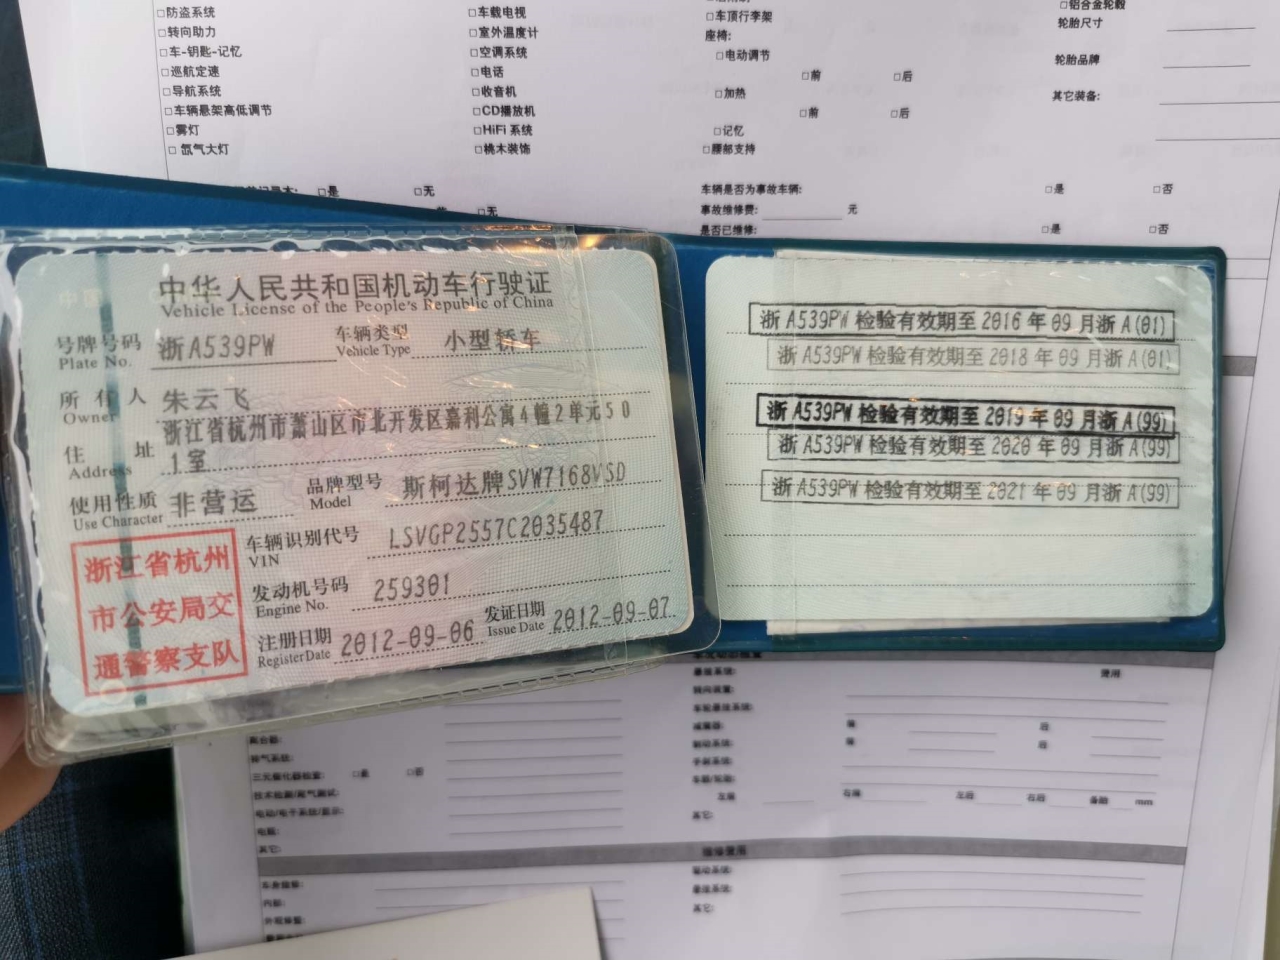 □防盗系统
□转向助力
□车-钥匙-记忆
□巡航定速
□导航系统
□车辆悬架高低调节
□雾灯
□ 氙气大灯
□车载电视
□室外温度计
□空调系统
□电话
□收音机
□CD播放机
□HiFi 系统
□桃木装饰
□车顶行李架
座椅:
□电动调节
□前 □后
□加热
□前 □后
□记忆
□腰部支持
□铝合金轮毂
轮胎尺寸
轮胎品牌
其它装备:
□是 □无
□无
车辆是否为事故车辆: □是 □否
事故维修费: 元
是否已维修: □是 □否
中华人民共和国机动车行驶证
Vehicle License of the People's Republic of China
号牌号码 浙A539PW 车辆类型 小型轿车
Plate No. Vehicle Type
所有人 朱云飞
Owner
住址 浙江省杭州市萧山区市北开发区嘉利公寓4幢2单元50
Address 1室
使用性质 非营运 品牌型号 斯柯达牌SVW7168VSD
Use Character Model
浙江省杭州
市公安局交
通警察支队
车辆识别代号 LSVGP2557C2035487
VIN
发动机号码 259301
Engine No.
注册日期 2012-09-06 发证日期 2012-09-07
Register Date Issue Date
浙A539PW检验有效期至2016年09月浙A(01)
浙A539PW检验有效期至2018年09月浙A(01)
浙A539PW检验有效期至2019年09月浙A(99)
浙A539PW检验有效期至2020年09月浙A(99)
浙A539PW检验有效期至2021年09月浙A(99)
悬挂系统: 费用
转向装置:
车轮悬挂系统:
减震器: 前 后
制动系统: 前 后
离合器:
排气系统:
三元催化器检查: □是 □否
技术检测/尾气测试:
电动/电子系统/显示:
电瓶:
其它:
其它:
维修费用
车身维修:
内部:
驱动系统:
悬挂系统:
其它: